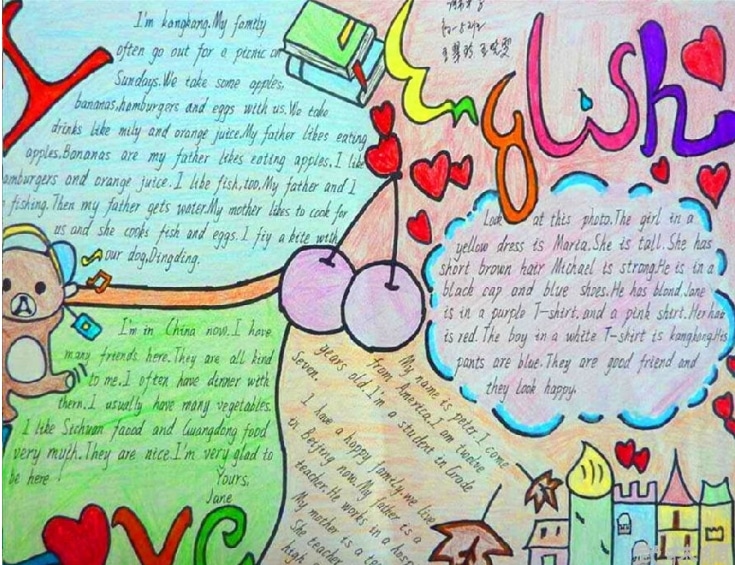 English
I'm kangkang.My family
often go out for a picnic on
Sundays.We take some apples,
bananas,hamburgers and eggs with us.We take
drinks like mily and orange juice.My father likes eating
apples.Bananas are my father likes eating apples.I like
hamburgers and orange juice.I like fish,too.My father and I
fishing.Then my father gets water.My mother likes to cook for
us and she cooks fish and eggs.I fiy a kite with
our dog,Dingding.
Look at this photo.The girl in a
yellow dress is Maria.She is tall.She has
short brown hair Michael is strong.He is in a
black cap and blue shoes.He has blond.Jane
is in a purple T-shirt.and a pink shirt.Her hair
is red.The boy in a white T-shirt is kangkong.His
pants are blue.They are good friend and
they look happy.
I'm in China now.I have
many friends here.They are all kind
to me.I often have dinner with
them.I usually have many vegetables.
I like Sichuan food and Guangdong food
very much.They are nice.I'm very glad to
be here
Yours,
Jane
My name is peter.I come
from America.I am twelve
years old.I'm a student in Grade
Seven.
I have a happy family.we live
in Beijing now.My father is a
teacher.He works in a
My mother is a
She teacher
high